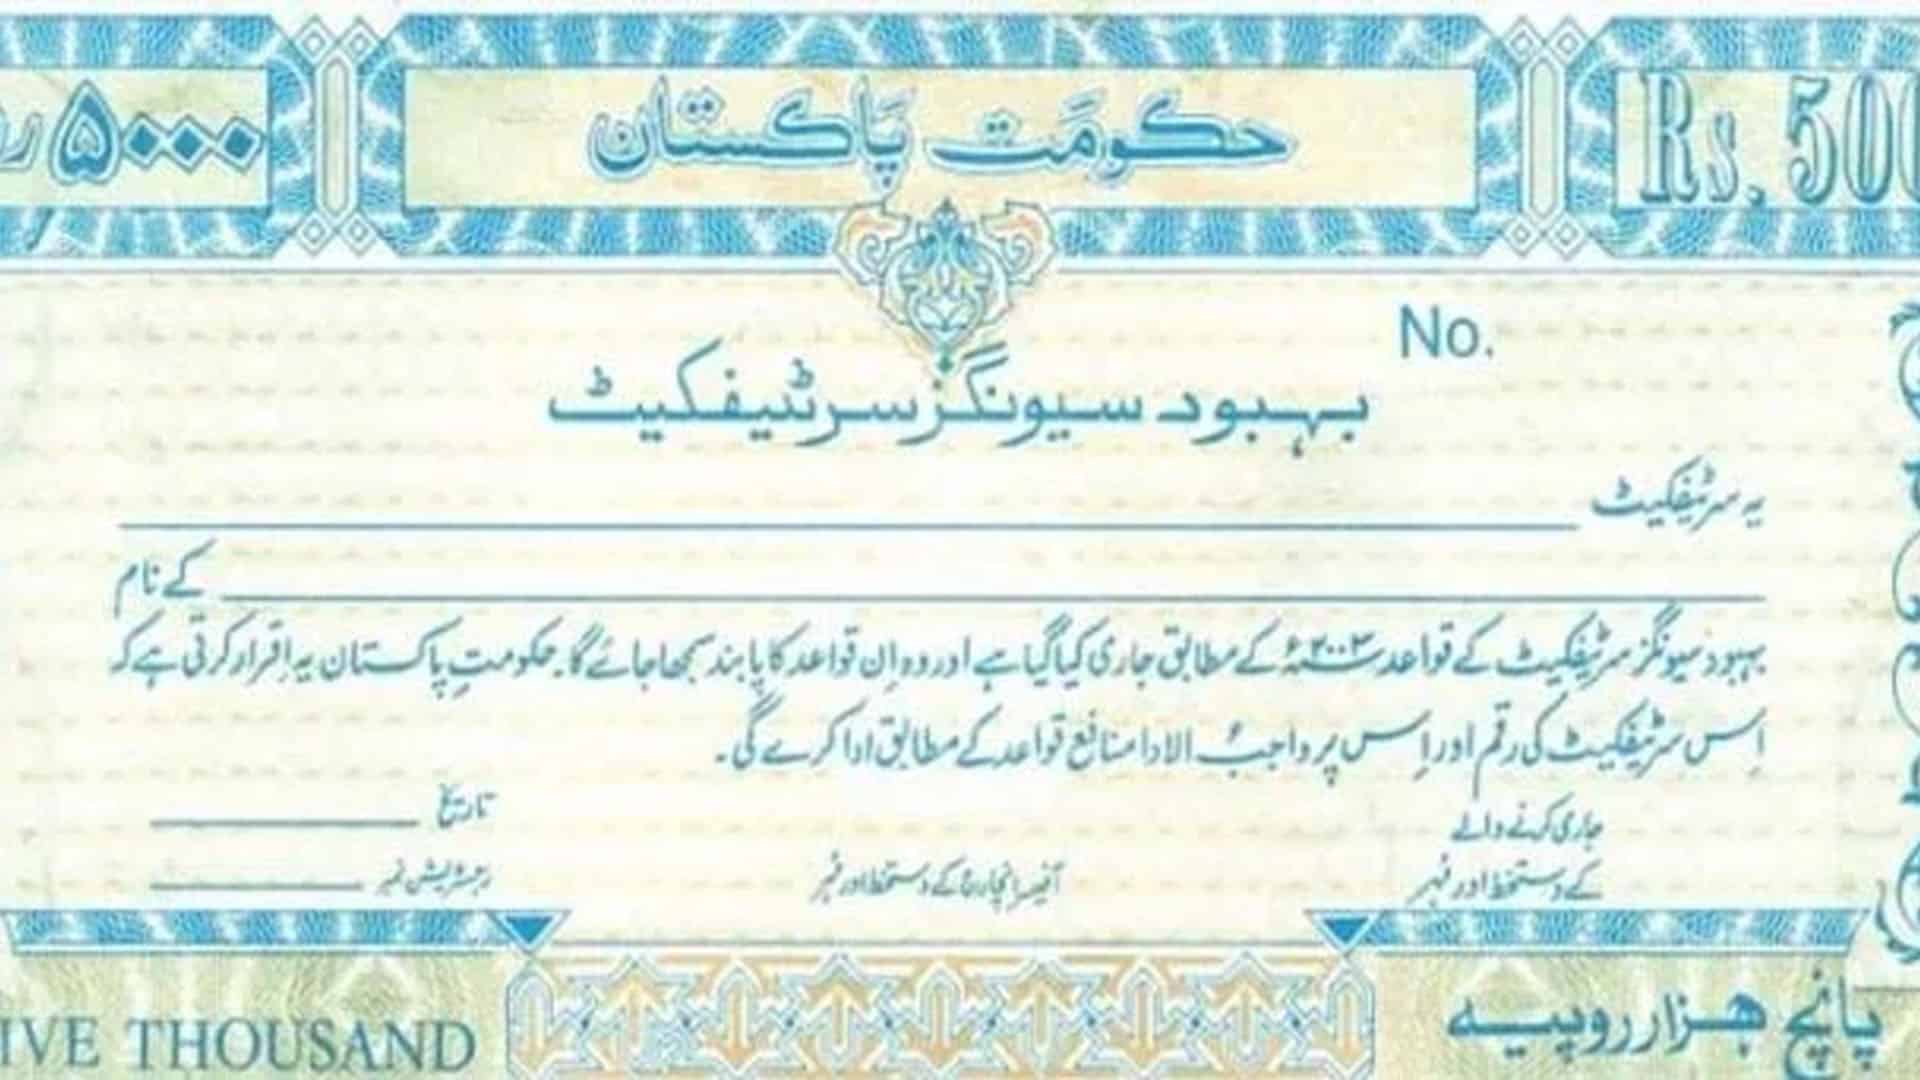 ۵۰۰۰ حکومَت پَاکستان Rs. 500
No.
بہبود سیونگز سرٹیفکیٹ
یہ سرٹیفکیٹ
کے نام
بہبود سیونگز سرٹیفکیٹ کے قواعد ۲۰۰۳ء کے مطابق جاری کیا گیا ہے اور وہ اِن قواعد کا پابند سمجھا جائے گا۔ حکومتِ پاکستان یہ اِقرار کرتی ہے کہ
اِس سرٹیفکیٹ کی رقم اور اِس پر واجبُ الادا منافع قواعد کے مطابق ادا کرے گی۔
تاریخ
جاری کرنے والے
کے دستخط اور نمبر
آفیسر انچارج کے دستخط اور نمبر
رجسٹریشن نمبر
IVE THOUSAND
پانچ ہزار روپیے